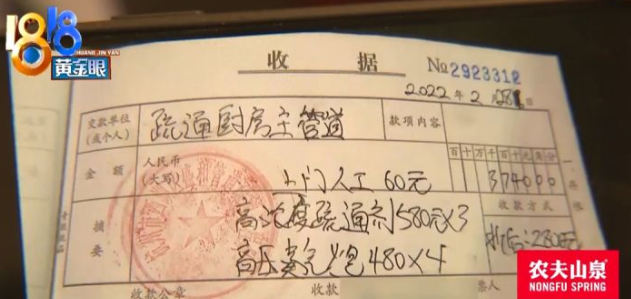 1818
HUANG JIN YAN
黄金眼
收 据
№2923312
2022年2月28日
交款单位
(或个人)
疏通厨房主管道
款项内容
百十万千百十元角分
金额
人民币
(大写)
上门人工 60元
374000
收款方式
摘要
高浓度疏通剂580元×3
高压氮气炮480×4
收款公章
收款
票人
农夫山泉
NONGFU SPRING